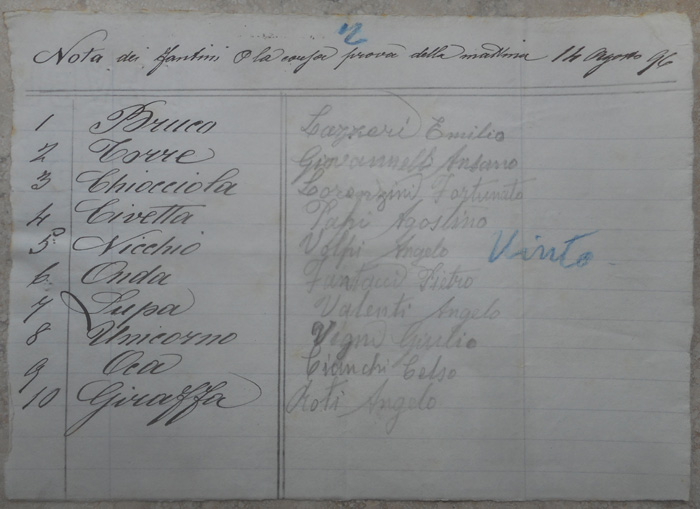 2
Nota dei Fantini a la corsa prova della mattina 14 Agosto 96
1 Bruco Lazzeri Emilio
2 Torre Giovannelli Ansano
3 Chiocciola Lorenzini Fortunato
4 Civetta Papi Agostino
5° Nicchio Volpi Angelo Vinto
6 Onda Fantacci Pietro
7 Lupa Valenti Angelo
8 Unicorno Vigni Giulio
9 Oca Cianchi Celso
10 Giraffa Angelo